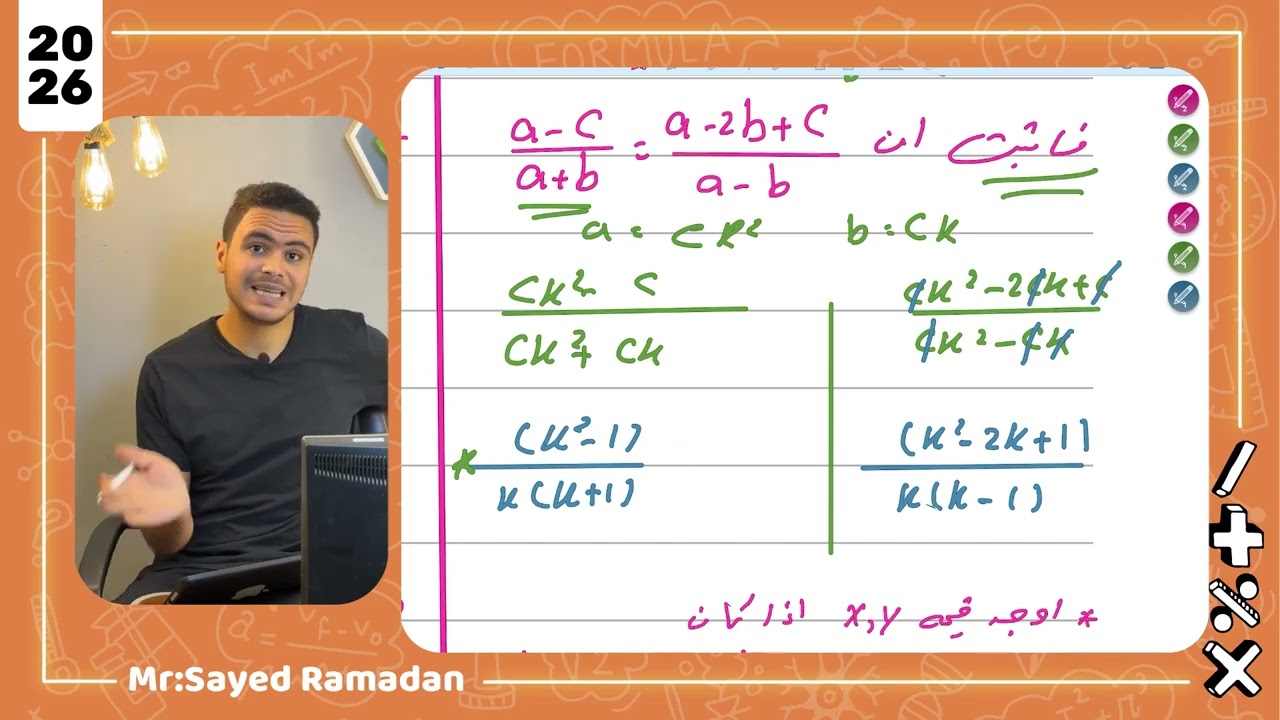 20
26
فاثبت ان a-c/a+b = a-2b+c/a-b
a = ck² b = ck
ck² - c / ck² + ck
ck² - 2ck + c / ck² - ck
* (k² - 1) / k(k+1)
(k² - 2k + 1) / k(k - 1)
* اوجد قيمه x, y اذا كان
Mr:Sayed Ramadan